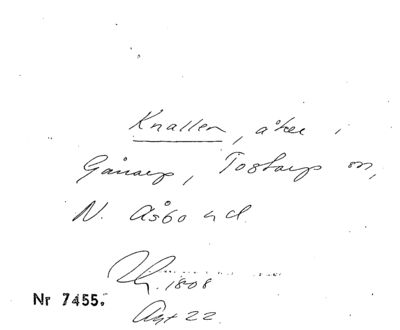 Knallen, åker i
Gånarp, Tostarp sn,
N. Åsbo hd
1808
Nr 7455.
Akt 22